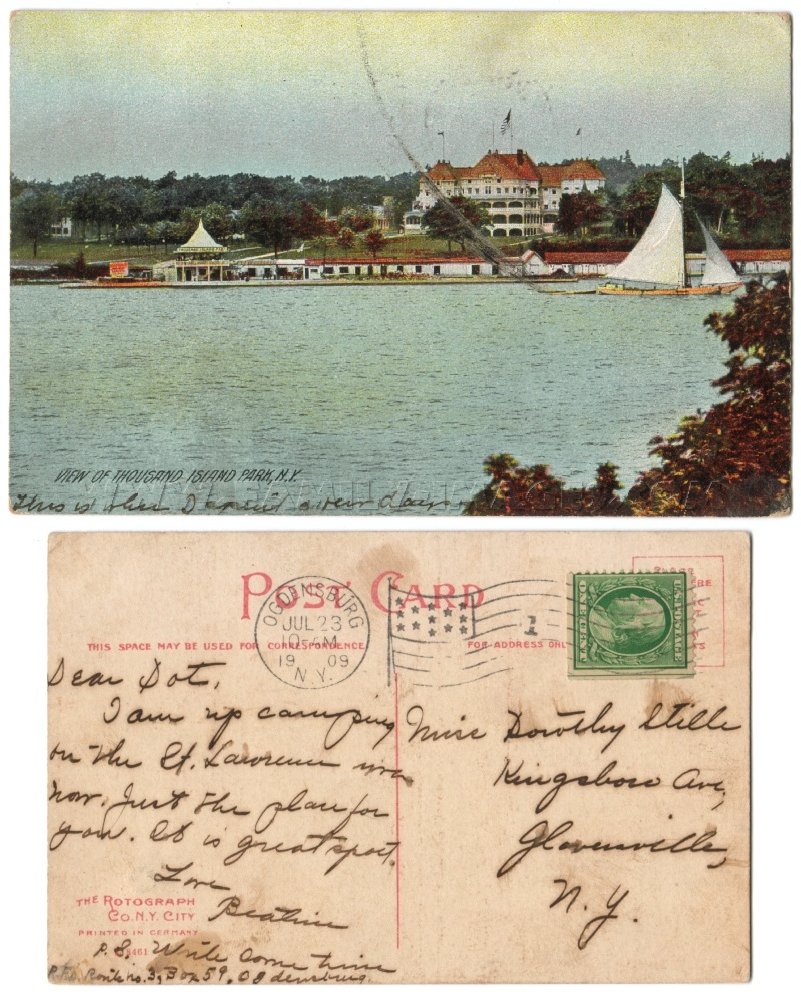 VIEW OF THOUSAND ISLAND PARK, N.Y.
This is where I spent a few days
POST CARD
OGDENSBURG
JUL 23
10-AM
1909
N.Y.
1
THIS SPACE MAY BE USED FOR CORRESPONDENCE
FOR ADDRESS ONL
U.S. POSTAGE
ONE CENT
Dear Dot,
I am up camping
on the St. Lawrence
now. Just the place for
you. It is great sport.
Love
Beatrice
P.S. Write some time
R.F.D. Route no. 3, Box 59, Ogdensburg.
Miss Dorothy Stille
Kingsboro Ave,
Gloversville,
N.Y.
THE ROTOGRAPH
CO. N.Y. CITY
PRINTED IN GERMANY